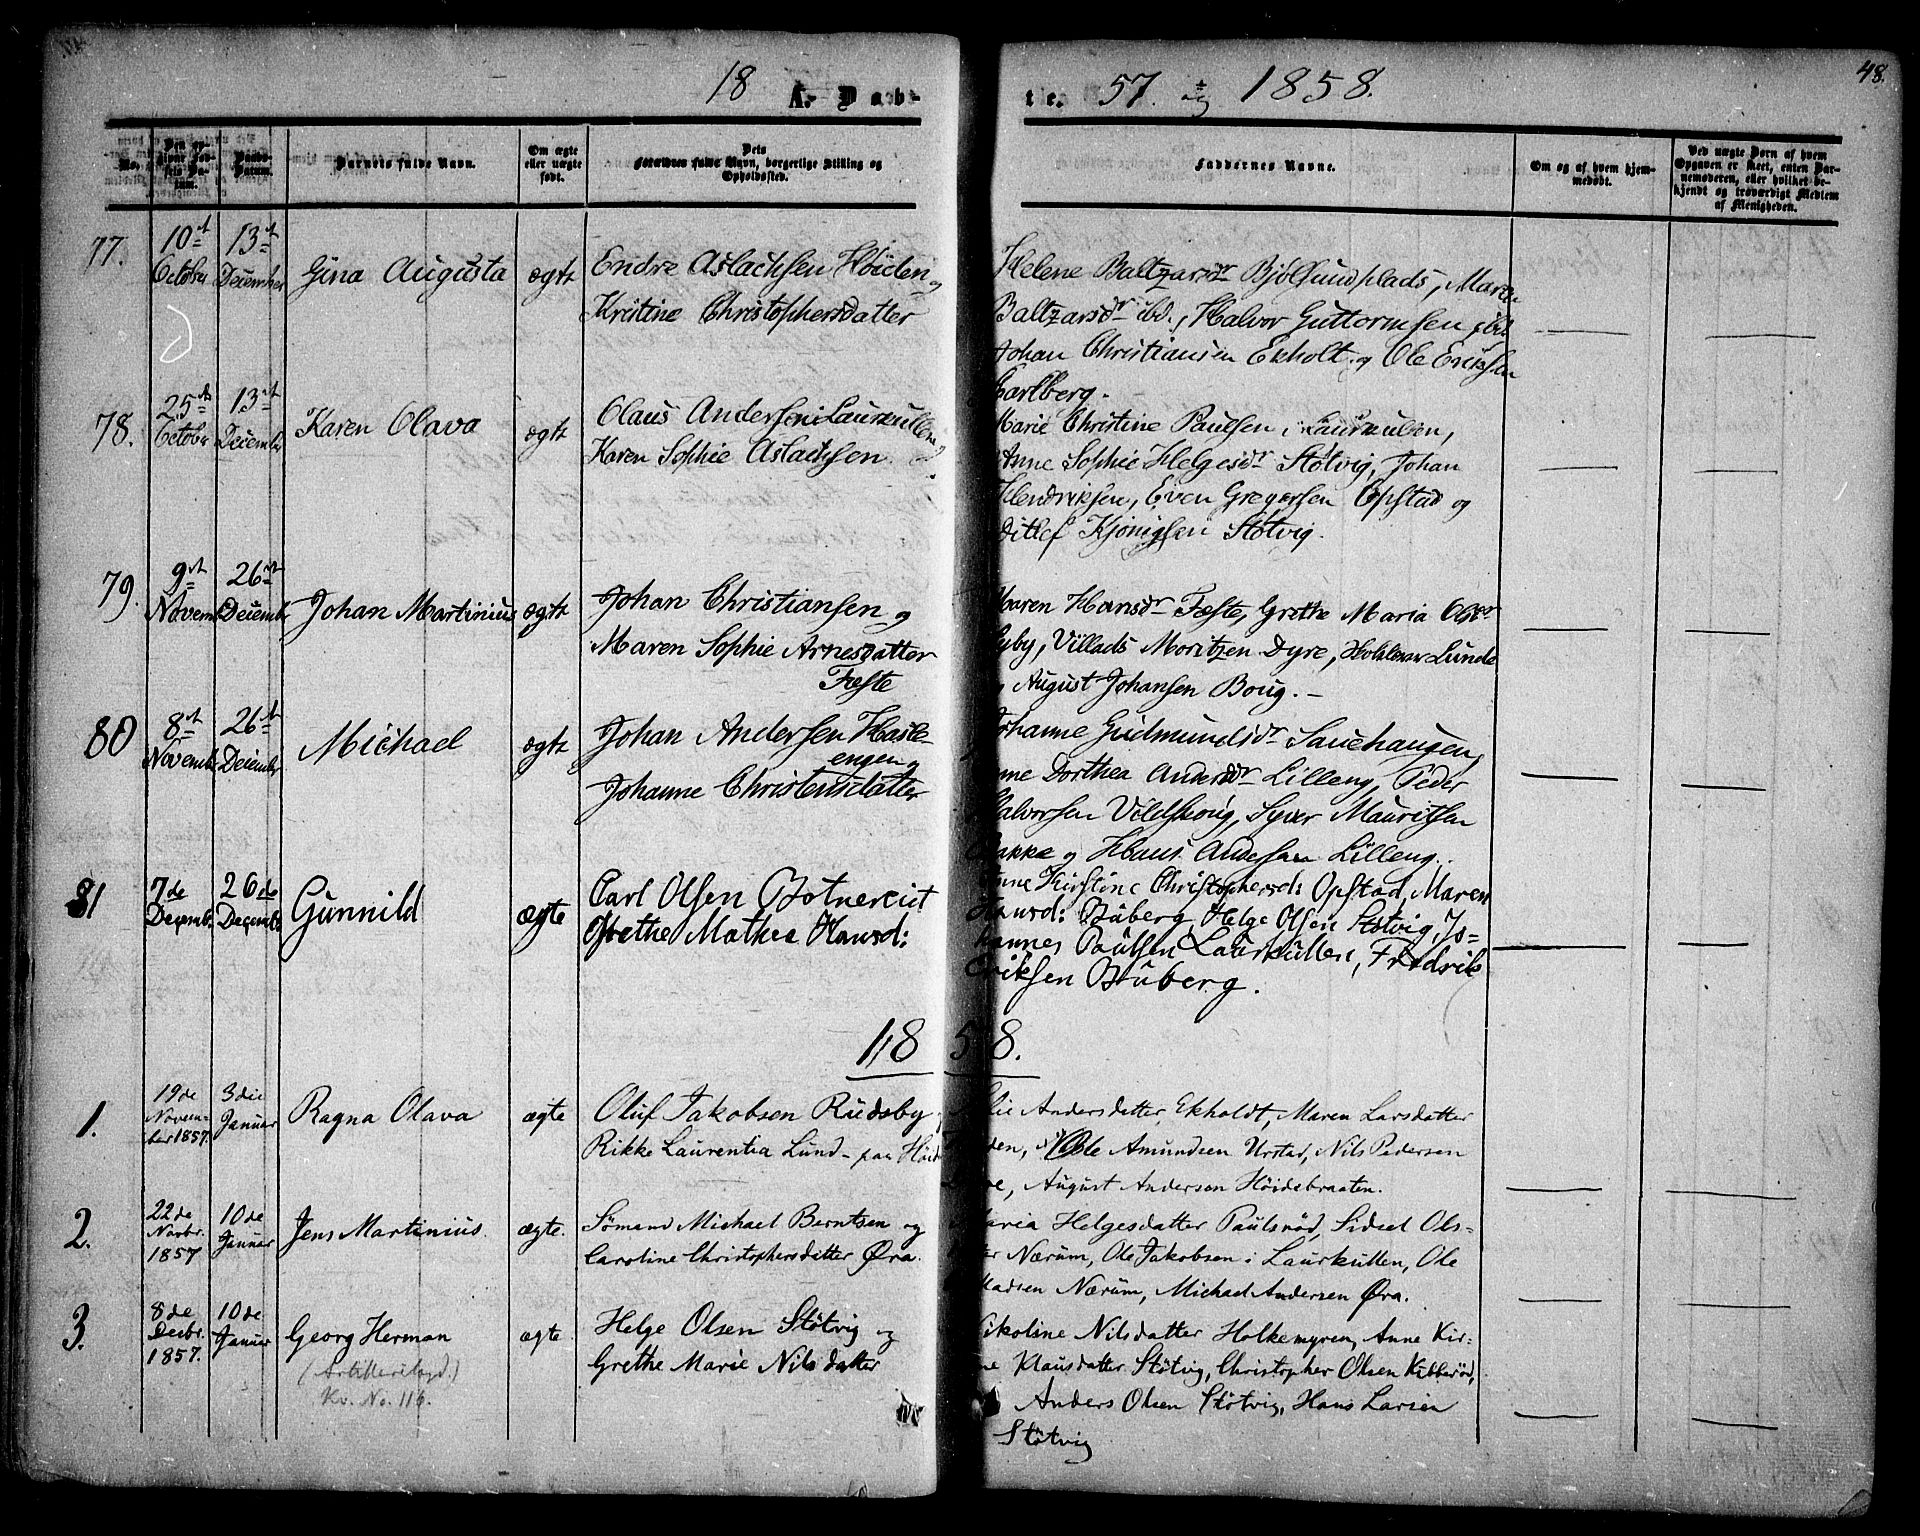 18 A. Døbte. 57. og 1858. 48.
No.
Den opgivne Fødsels Datum.
Daabs-Datum.
Barnets fulde Navn.
Om ægte eller uægte født.
Dets Forældres fulde Navn, borgerlige Stilling og Opholdssted.
Faddernes Navne.
Om og af hvem hjemmedøbt.
Ved uægte Børn af hvem Opgaven er skeet, enten Barnemoderen, eller hvilket bekjendt og troværdigt Medlem af Menigheden.
77. 10de October 13de December Gina Augusta ægte
Endre Aslachsen Høiden og
Kristine Christophersdatter
Helene Baltzarsdr Bjølsundplads, Maren
Baltzarsdr ibd., Halvor Guttormsen ibd
Johan Christiansen Ekholt og Ole Eriksen
Karlberg.
78. 25de October 13de December Karen Olava ægte
Olaus Andersen i Laurkullen og
Karen Sophie Aslachsen.
Marie Christine Paulsen i Laurkullen,
Anne Sophie Helgesdr Støtvig, Johan
Hendriksen, Even Gregersen Opstad og
Ditlef Kjønigsen Støtvig.
79. 9de Novemb 26de Decembr Johan Martinius ægte
Johan Christiansen og
Maren Sophie Arnesdatter
Fæste
Karen Hansdr Fæste, Grethe Maria Olsdr
Ryby, Villads Moritzen Dyre, Lunde
og August Johansen Boug. –
80 8de Novembr 26de Decembr Michael ægte
Johan Andersen Hasle-
engen og
Johanne Christensdatter
Johanne Gudmundsdr Sauehaugen,
Anne Dorthea Andersdr Lilleng, Peder
Halvorsen Vildskoug, Syver Mauritsen
Bakke og Hans Andersen Lilleng.
81 7de Decemb. 26de Decemb. Gunnild ægte
Carl Olsen Botnereiet
Grethe Mathea Hansd:
Anne Kirstine Christophersd: Opstad, Maren
Hansd: Buberg, Helge Olsen Støtvig, Jo=
hannes Paulsen Laurkullen, Fredrik
Eriksen Buberg.
1858.
1. 19de November 1857. 3die Januar Ragna Olava ægte
Oluf Jakobsen Rudsby og
Rikke Laurentia Lund – paa Høiden
Andersdatter Ekholdt, Maren Larsdatter
Ole Amundsen Urstad, Nils Pedersen
August Andersen Høidebraaten.
2. 22de Novbr. 1857 10de Januar Jens Martinius. ægte.
Sømand Michael Berntsen og
Caroline Christophersdatter Øra.
Maria Helgesdatter Paulsnød, Sidsel Ols-
datter Nærum, Ole Jakobsen i Laurkullen, Ole
Madsen Nærum, Michael Andersen Øra.
3. 8de Decbr. 1857. 10de Januar Georg Herman ægte.
(Artillerilagd.)
Kv. No. 116.
Helge Olsen Støtvig og
Grethe Marie Nilsdatter
Nikoline Nilsdatter Holkemyren, Anne Kir-
stine Klausdatter Støtvig, Christopher Olsen Kibberød,
Anders Olsen Støtvig, Hans Larsen
Støtvig